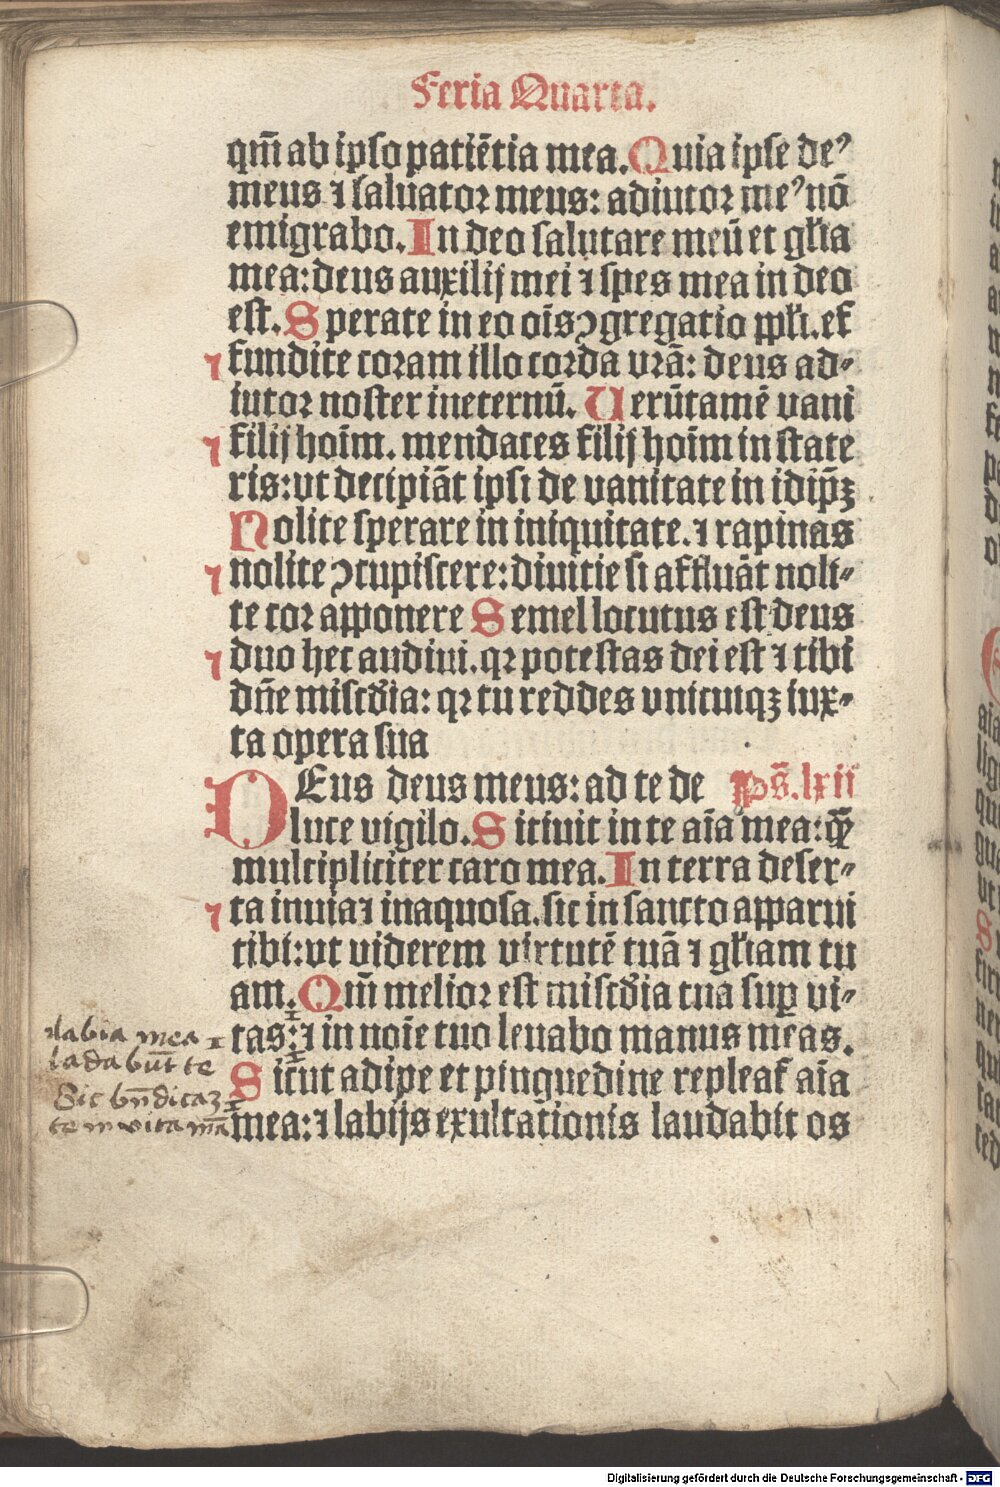 Feria Quarta.
qm̄ ab ipso patiētia mea. Quia ipse deꝰ
meus ⁊ saluator meus: adiutor meꝰ nō
emigrabo. In deo salutare meū et gl̄ia
mea: deus auxilij mei ⁊ spes mea in deo
est. Sperate in eo oīs ↄgregatio ppl̄i. ef
fundite coram illo corda vrā: deus ad⸗
iutor noster ineternū. Uerūtamē vani
filij hoīm. mendaces filij hoīm in state
ris: vt decipiāt ipsi de vanitate in idip̄ꝫ
Nolite sperare in iniquitate. ⁊ rapinas
nolite ↄcupiscere: diuitie si affluāt noli⸗
te cor apponere Semel locutus est deus
duo hec audiui. qꝛ potestas dei est ⁊ tibi
dn̄e misc̄dia: qꝛ tu reddes vnicuiqꝫ iux⸗
ta opera sua
DEus deus meus: ad te de ps̄. lxii
luce vigilo. Sitiuit in te aīa mea: q̄ꝫ
multipliciter caro mea. In terra deser⸗
ta inuia ⁊ inaquosa. sic in sancto apparui
tibi: vt viderem virtutē tuā ⁊ gl̄iam tu
am. Qm̄ melior est misc̄dia tua suꝑ vi⸗
tas: ⁊ in noīe tuo leuabo manus meas.
Sicut adipe et pinguedine repleat̄ aīa
mea: ⁊ labijs exultationis laudabit os
⁊labia mea
lādabūt te
Sic bn̄dicaꝫ
te in vita mā
Digitalisierung gefördert durch die Deutsche Forschungsgemeinschaft - DFG